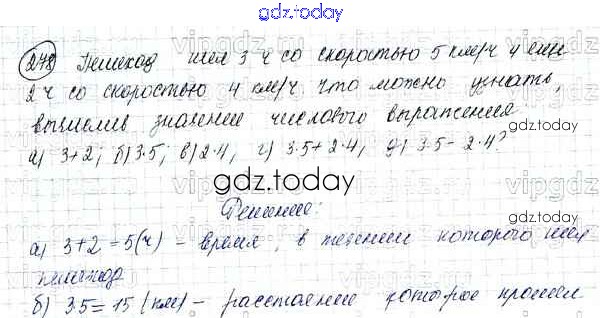 gdz.today
278 Пешеход шел 3 ч со скоростью 5 км/ч и еще
2 ч со скоростью 4 км/ч что можно узнать,
вычислив значение числового выражения
gdz.today
а) 3+2; б) 3·5; в) 2·4, г) 3·5+2·4, д) 3·5-2·4?
gdz.today
Решение:
а) 3+2=5(ч) - время, в течении которого шел
пешеход
б) 3·5=15 (км) - расстояние которое прошел